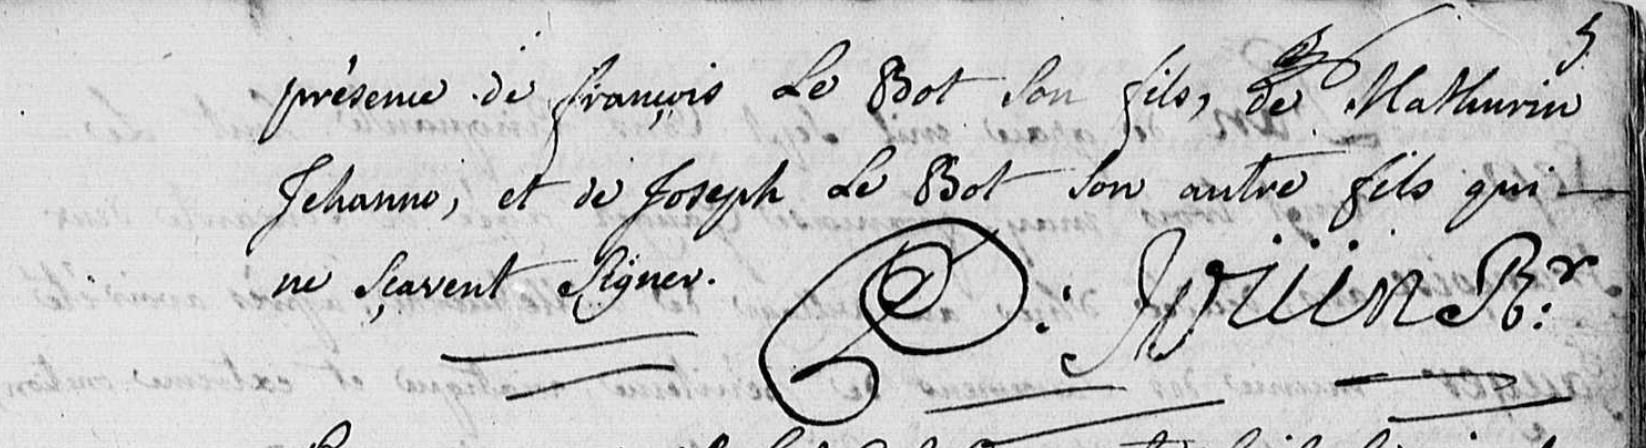 5
présence de françois Le Bot Son fils, de Mathurin
Jehanno, et de Joseph Le Bot Son autre fils qui
ne sçavent Signer.